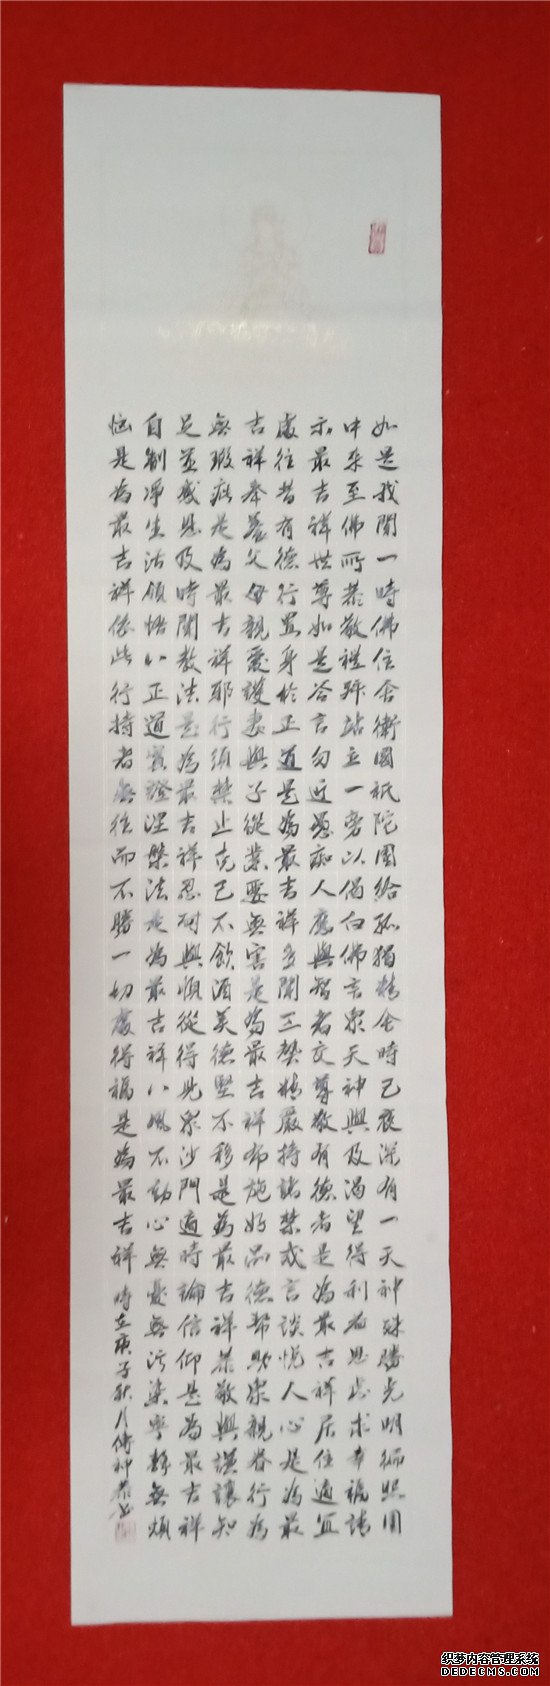 如是我聞一時佛住舍衛國祇陀園給孤獨精舍時已夜深有一天神殊勝光明徧照園
中來至佛所恭敬禮拜站立一旁以偈白佛言眾天神與及渴望得利益思慮求幸福請
示最吉祥世尊如是答言勿近愚痴人應與智者交尊敬有德者是為最吉祥居住適宜
處往昔有德行置身於正道是為最吉祥多聞工藝精嚴持諸禁戒言談悅人心是為最
吉祥奉養父母親愛護妻與子從業要無害是為最吉祥布施好品德幫助眾親眷行為
無瑕疵是為最吉祥邪行須禁止克己不飲酒美德堅不移是為最吉祥恭敬與謙讓知
足並感恩及時聞教法是為最吉祥忍耐與順從得見眾沙門適時論信仰是為最吉祥
自制凈生活領悟八正道實證涅槃法是為最吉祥八風不動心無憂無污染寧靜無煩
惱是為最吉祥依此行持者無往而不勝一切處得福是為最吉祥 時在庚子秋月傅神恭書
织梦内容管理系统
DEDECMS.COM